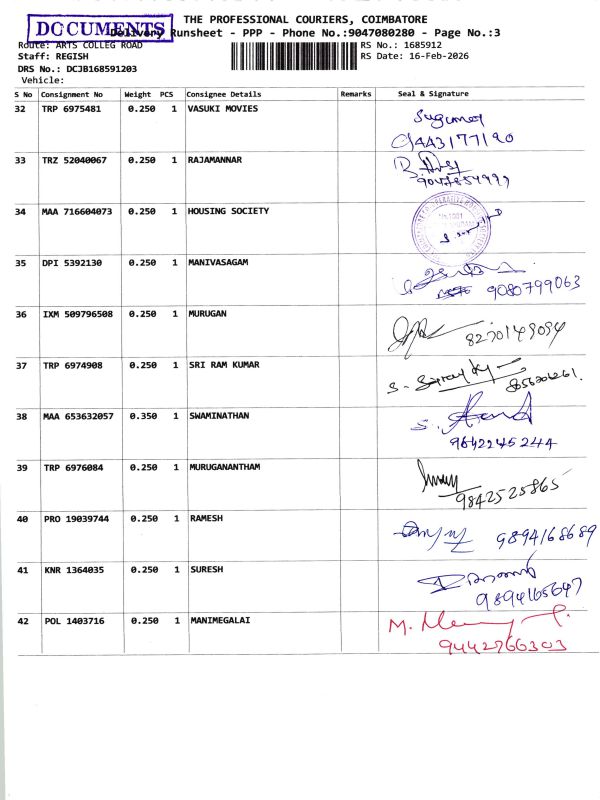 THE PROFESSIONAL COURIERS, COIMBATORE
DOCUMENTS
Delivery Runsheet - PPP - Phone No.:9047080280 - Page No.:3
Route: ARTS COLLEG ROAD RS No.: 1685912
Staff: REGISH RS Date: 16-Feb-2026
DRS No.: DCJB168591203
Vehicle:
S No Consignment No Weight PCS Consignee Details Remarks Seal & Signature
32 TRP 6975481 0.250 1 VASUKI MOVIES Sugumar
9443177190
33 TRZ 52040067 0.250 1 RAJAMANNAR
9047854999
34 MAA 716604073 0.250 1 HOUSING SOCIETY
35 DPI 5392130 0.250 1 MANIVASAGAM
9080799063
36 IXM 509796508 0.250 1 MURUGAN 8220149094
37 TRP 6974908 0.250 1 SRI RAM KUMAR
38 MAA 653632057 0.350 1 SWAMINATHAN S. Anand
9642245244
39 TRP 6976084 0.250 1 MURUGANANTHAM
9842525865
40 PRO 19039744 0.250 1 RAMESH 9894168689
41 KNR 1364035 0.250 1 SURESH
9894165647
42 POL 1403716 0.250 1 MANIMEGALAI M.
9442766303